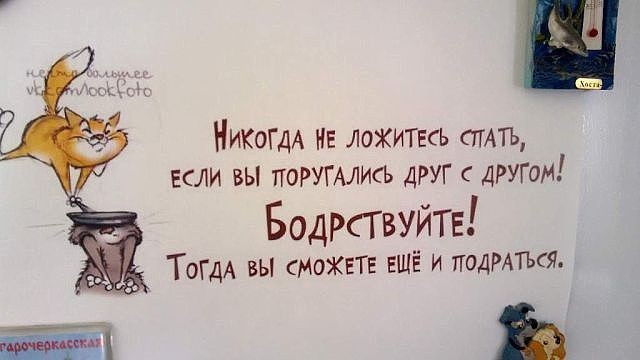 vk.com/lookfoto
Хоста
Никогда не ложитесь спать,
если вы поругались друг с другом!
Бодрствуйте!
Тогда вы сможете ещё и подраться.